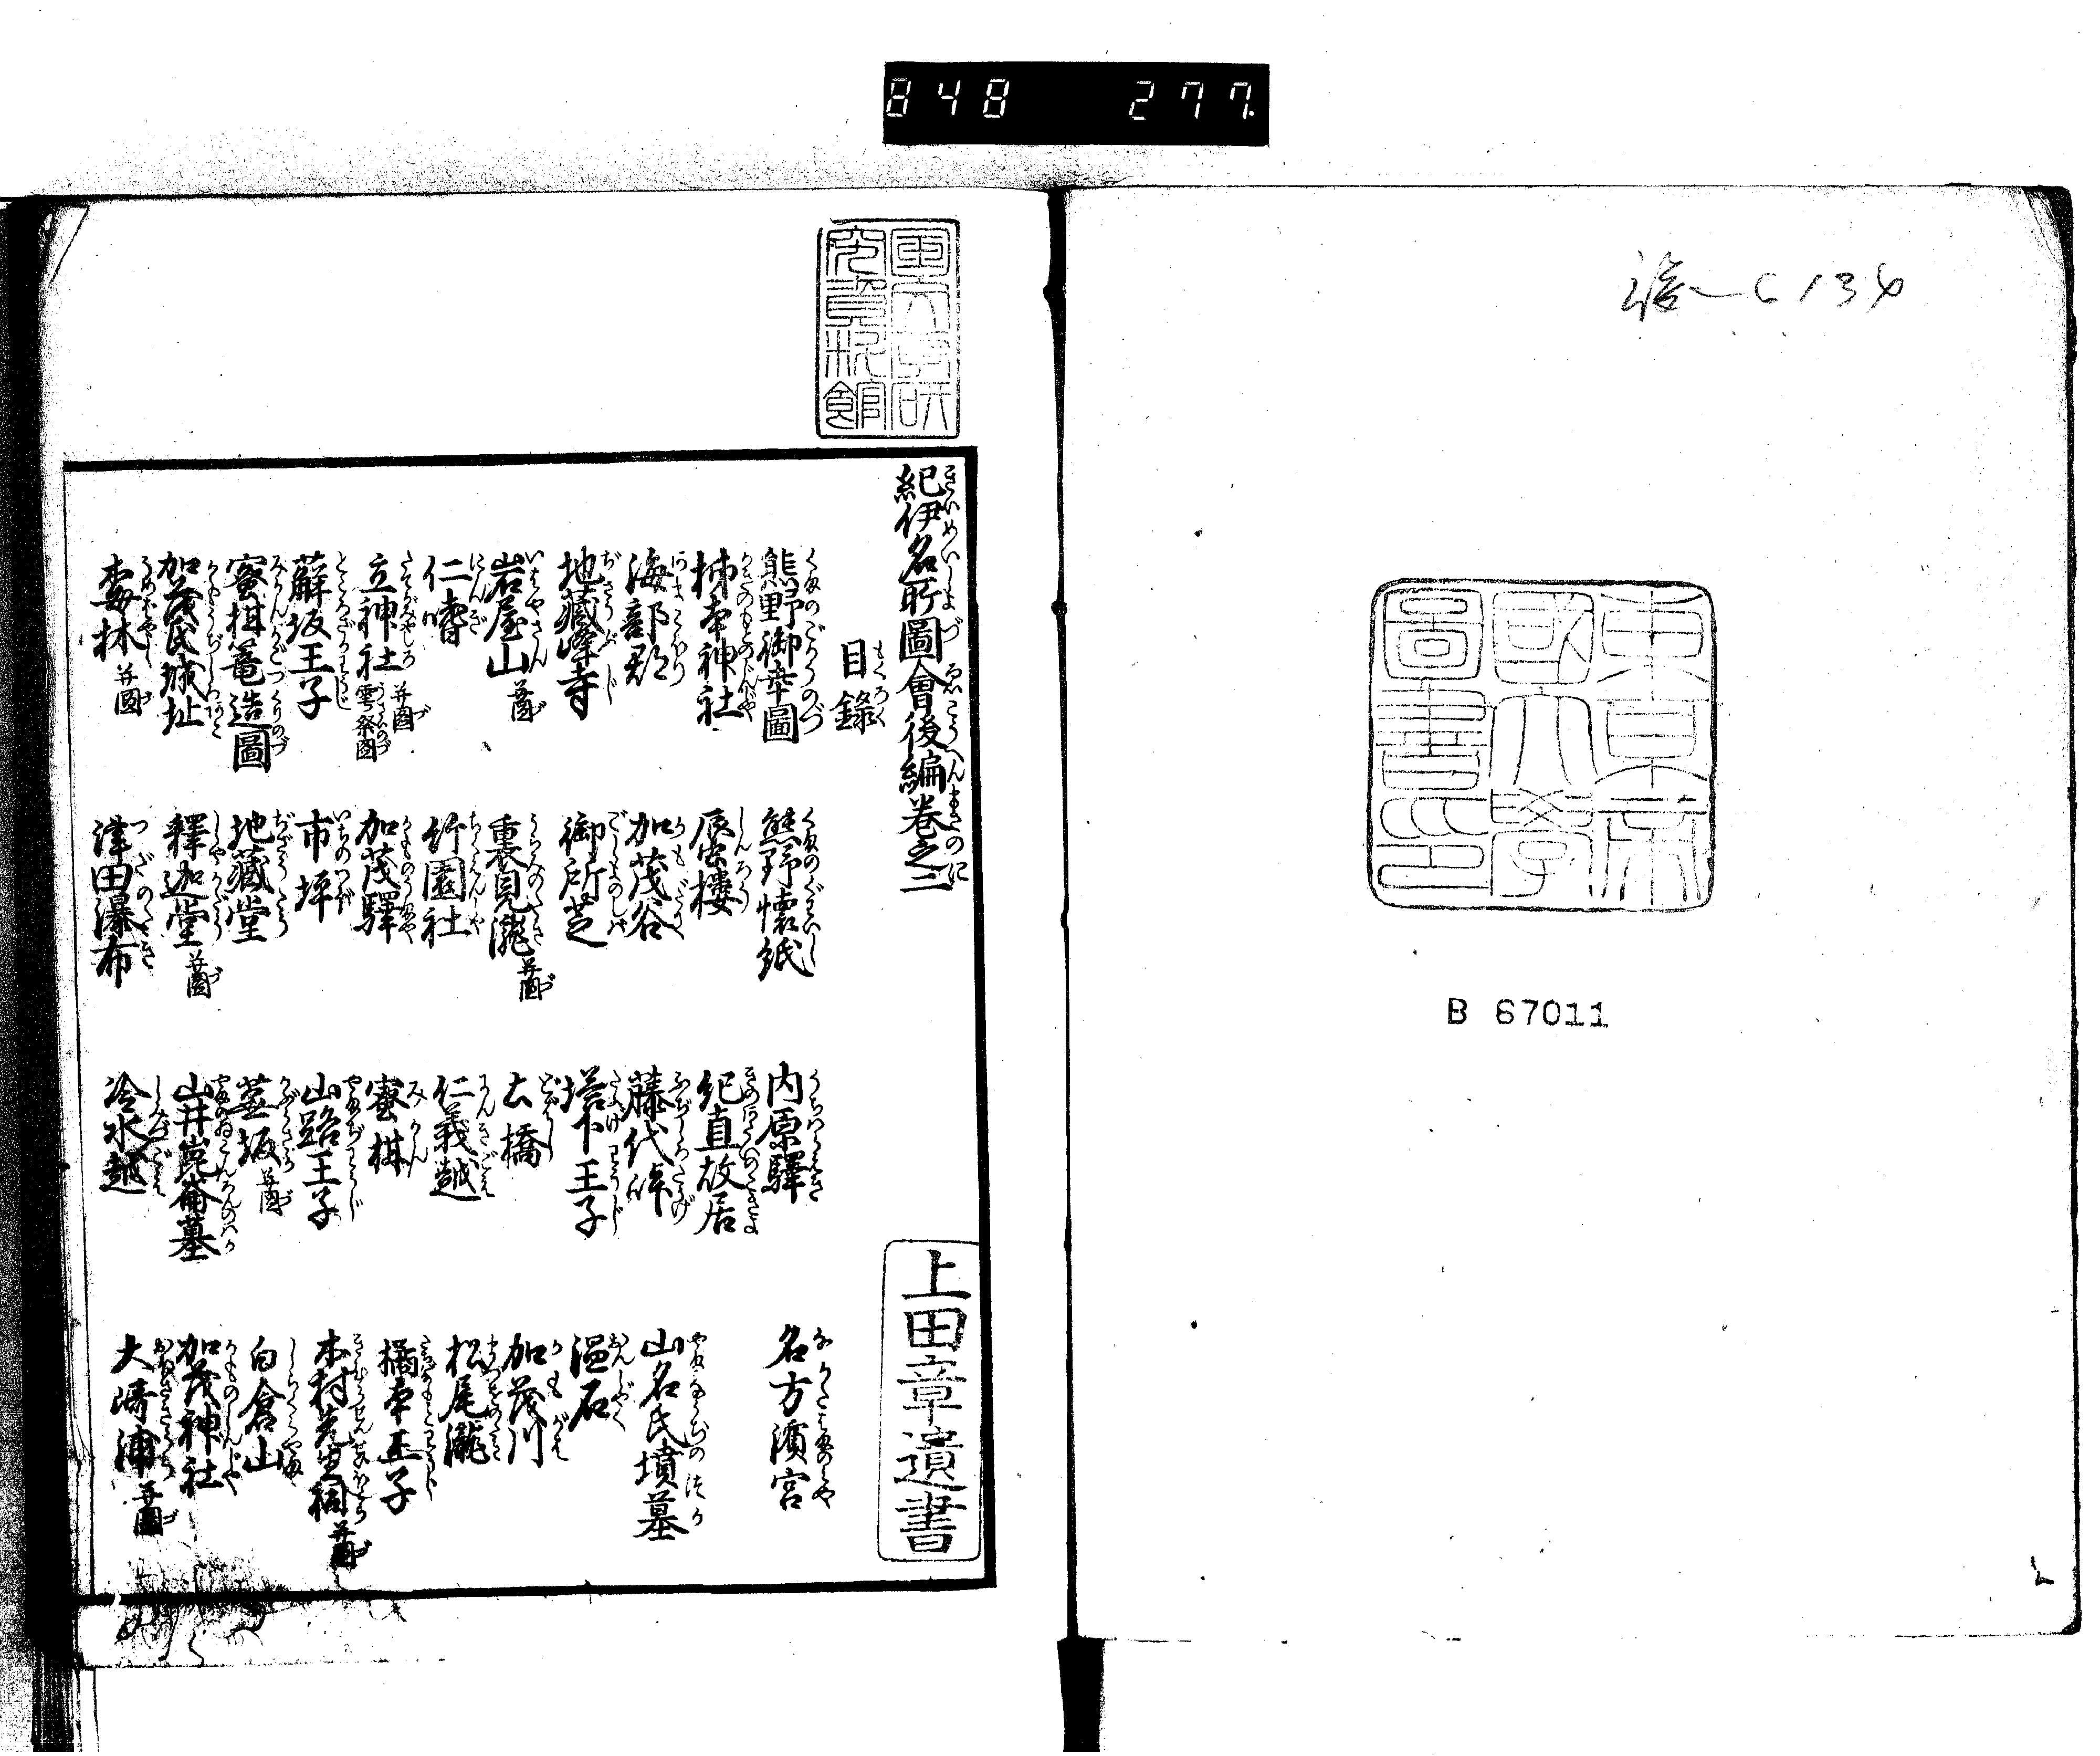 848 277
B 67011
東京師
國大學
圖書印
國文學研
究資料館
紀伊名所圖會後編卷之二
上田章遺書
目錄
熊野御幸圖 熊野懷紙 内原驛 名方濱宮
柿本神社 蜃樓 紀直故居
海部郡 加茂谷 藤代峠 山名氏墳墓
地藏峰寺 御所芝 塔下王子 温石
岩屋山 并圖 裏見瀧 并圖 土橋 加茂川
仁嗜 竹園社 仁義越 松尾瀧
立神社 并圖 雩祭圖 加茂驛 蜜柑 橘本王子
蘚坂王子 市坪 山路王子 木村 并圖
蜜柑篭造圖 地藏堂 蕪坂 并圖 白倉山
加茂氏城址 釋迦堂 并圖 山井崑崙墓 加茂神社
梅林 并圖 津田瀑布 冷水越 大崎浦 并圖